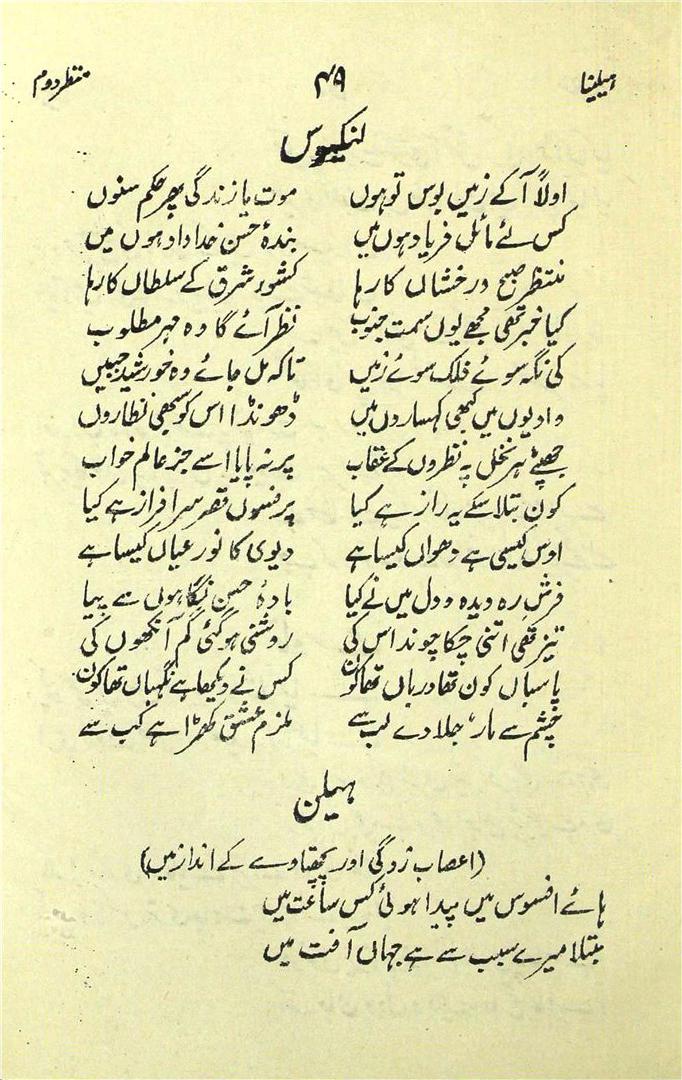 ہیلینا ۴۹ منظر دوم
لنکیوس
اولاً آ کے زمیں بوس تو ہوں موت یا زندگی پھر حکم سنوں
کس لئے مائل فریاد ہوں میں بندۂ حسن خداداد ہوں میں
منتظر صبح درخشاں کا رہا کشور شرق کے سلطاں کا رہا
کیا خبر تھی مجھے یوں سمت جنوب نظر آئے گا وہ مہر مطلوب
کی نگہ سوئے فلک سوئے زمیں تاکہ مل جائے وہ خورشید جبیں
وادیوں میں کبھی کہساروں میں ڈھونڈا اس کو سبھی نظاروں
جھپٹے ہر نخل پہ نظروں کے عقاب پر نہ پایا اسے جز عالم خواب
کون بتلا سکے یہ راز ہے کیا پر فسوں قصر سرافراز ہے کیا
اوس کیسی ہے دھواں کیسا ہے دیوی کا نور عیاں کیسا ہے
فرش رہ دیدہ و دل میں نے کیا بادۂ حسن نگاہوں سے پیا
تیز تھی اتنی چکا چوند اس کی روشنی ہو گئی گم آنکھوں کی
پاسباں کون تھا درباں تھا کون کس نے دیکھا ہے نگہباں تھا کون
چشم سے مار، جلا دے لب سے ملزم عشق کھڑا ہے کب سے
ہیلن
(اعصاب زدگی اور پچھتاوے کے انداز میں)
ہائے افسوس میں پیدا ہوئی کس ساعت میں
مبتلا میرے سبب سے ہے جہاں آفت میں